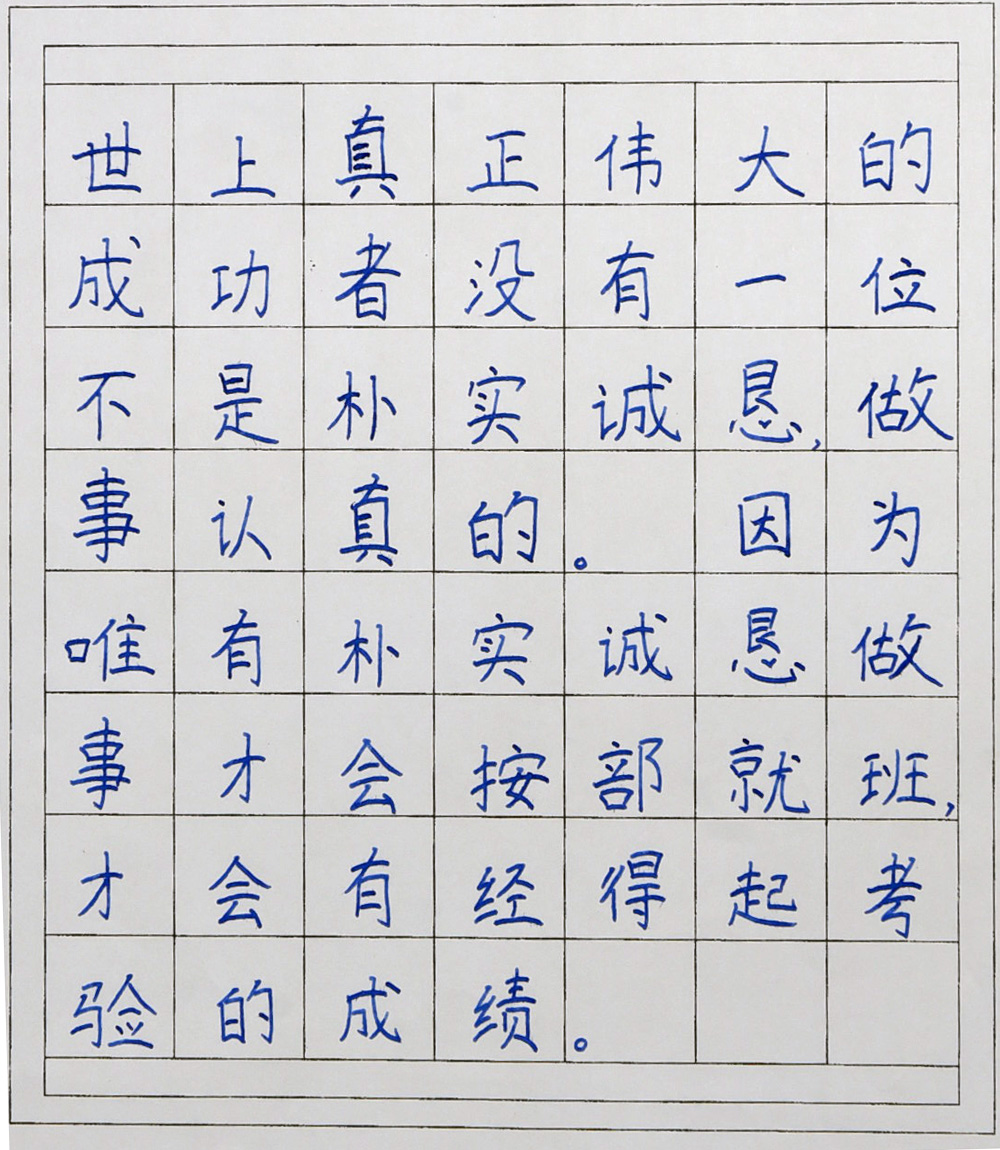 世上真正伟大的
成功者没有一位
不是朴实诚恳,做
事认真的。因为
唯有朴实诚恳做
事才会按部就班,
才会有经得起考
验的成绩。